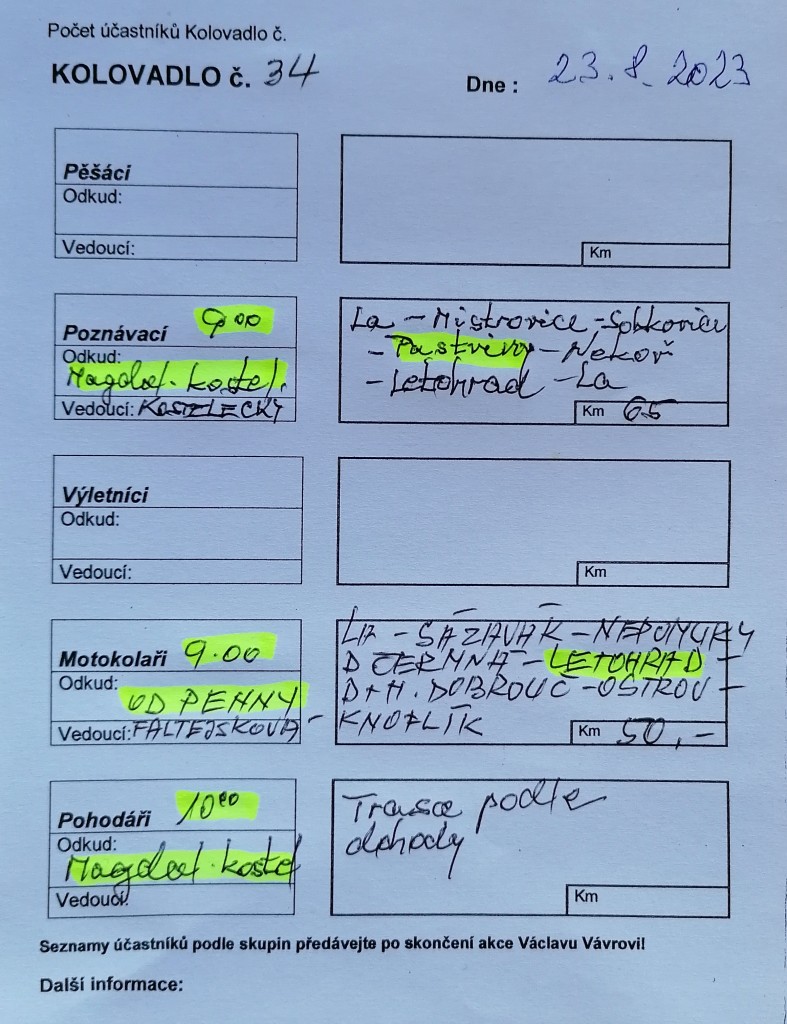 Počet účastníků Kolovadlo č.
KOLOVADLO č. 34
Dne : 23. 8. 2023
Pěšáci
Odkud:
Vedoucí:
Km
Poznávací 9.00
Odkud:
Magdal. kostel.
Vedoucí: KOSTELECKÝ
La - Mistrovice - Sobkovice
- Pastviny - Nekoř
- Letohrad - La
Km 65
Výletníci
Odkud:
Vedoucí:
Km
Motokolaři 9.00
Odkud:
OD PENNY
Vedoucí: FALTEJSKOVÁ -
LA - SÁZAVÁK - NEPOMUKY
D ČERMNÁ - LETOHRAD -
D+H. DOBROUČ - OSTROV -
KNOFLÍK
Km 50,-
Pohodáři 10 00
Odkud:
Magdal. kostel
Vedoucí:
Trasa podle
dohody
Km
Seznamy účastníků podle skupin předávejte po skončení akce Václavu Vávrovi!
Další informace: